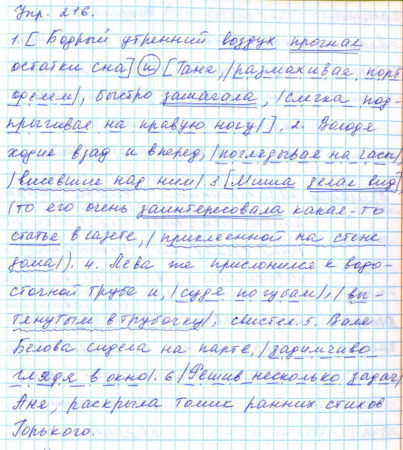 Упр. 216.
1. [Бодрый утренний воздух прогнал
остатки сна] и [Таня, /размахивая порт
фелем/, быстро зашагала, /слегка под-
прыгивая на правую ногу/]. 2. Володя
ходил взад и вперед, /поглядывая на часы/
/висевшие над ним/. 3 [Миша делал вид]
(то его очень заинтересовала какая-то
статья в газете, /приклеенной на стене
дома/). 4. Лева же прислонился к водо-
сточной трубе и, /судя по губам/, /вы-
тянутым в трубочку/, свистел. 5. Валя
Белова сидела на парте, /задумчиво
глядя в окно/. 6 /Решив несколько задач/
Аня, раскрыла томик ранних стихов
Горького.